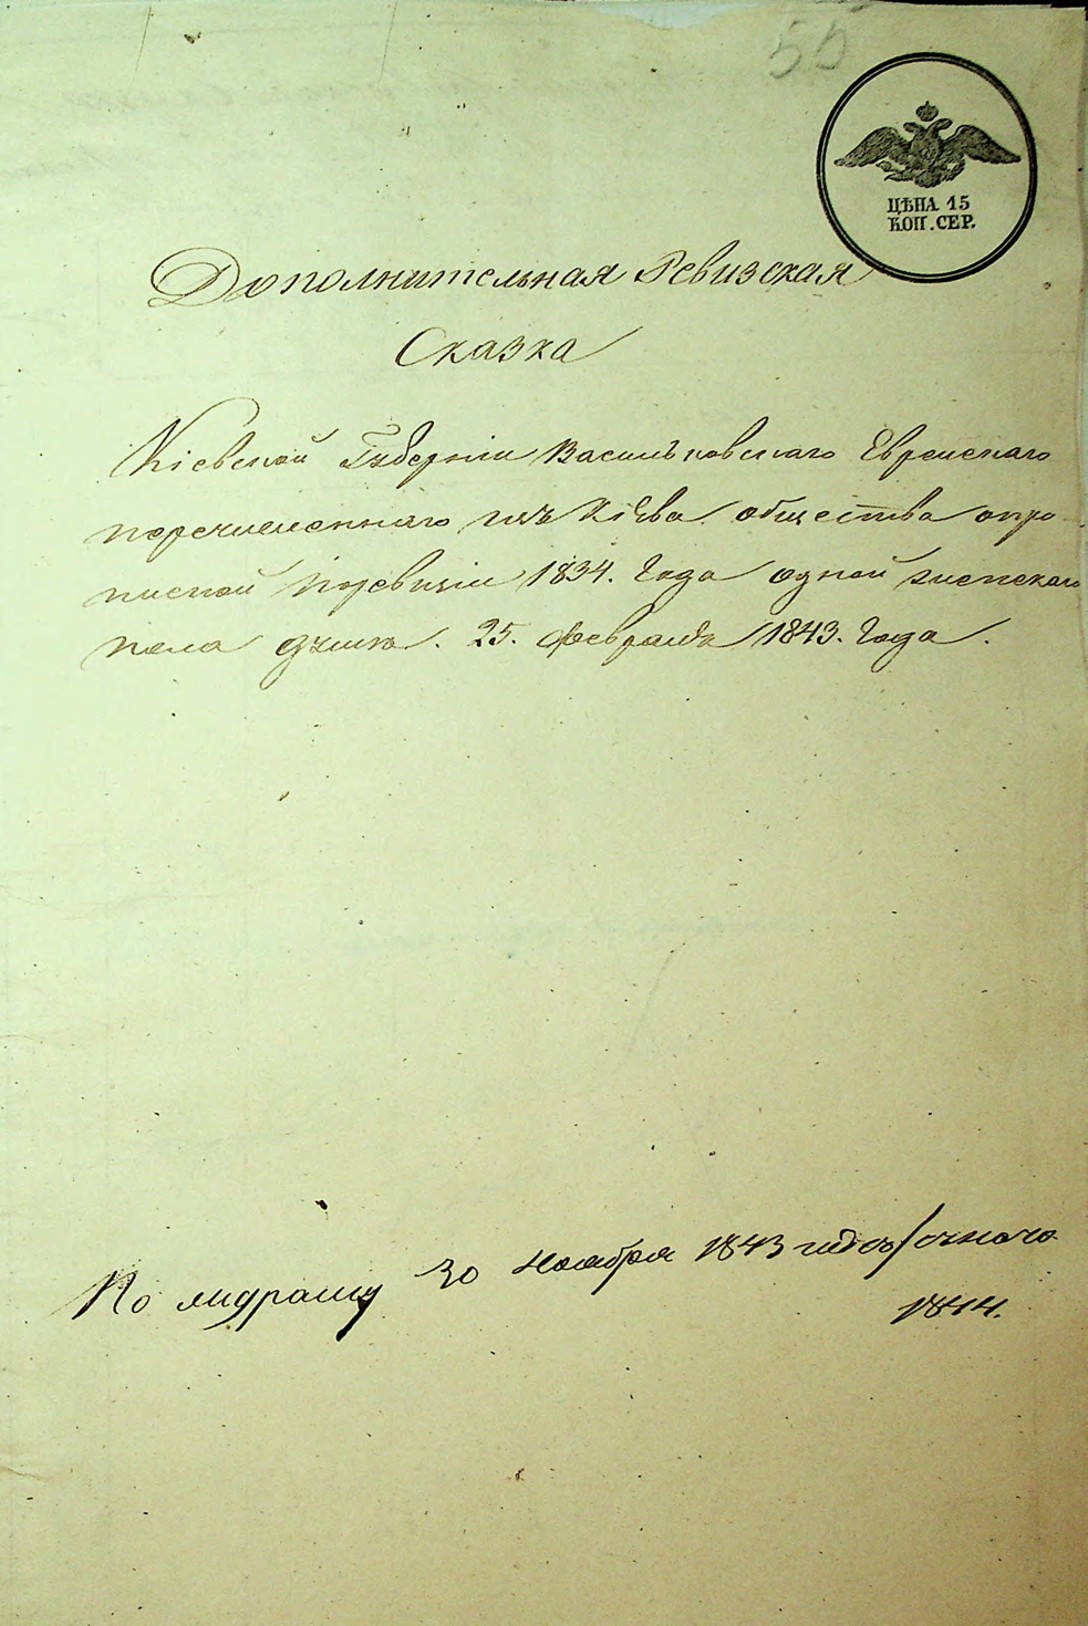 55
ЦѢНА 15
КОП. СЕР.
Дополнительная Ревизская
Сказка
Кіевской Губерніи Васильковскаго Еврейскаго
перечисленнаго изъ Кіева общества о про
писной поревизіи 1834. Года одной женскаго
пола души. 25. Февраля 1843. Года.
По 30 Ноября 1843
1844.